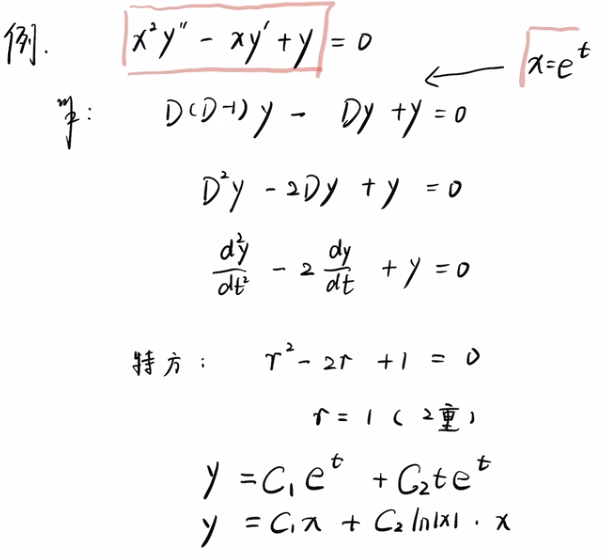 例. x²y'' - xy' + y = 0
x = e^t
解: D(D-1)y - Dy + y = 0
D²y - 2Dy + y = 0
d²y/dt² - 2 dy/dt + y = 0
特方: r² - 2r + 1 = 0
r = 1 (2重)
y = C₁e^t + C₂te^t
y = C₁x + C₂ln|x| · x